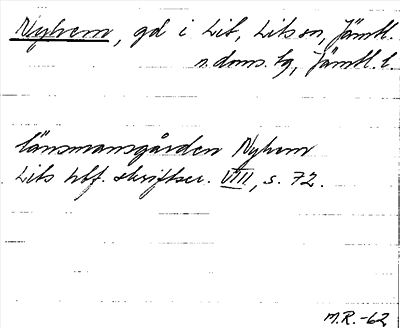 Nyhem, gd i Lit, Lits sn, Jämtl.
n. doms. tg, Jämtl. l.
länsmansgården Nyhem
Lits hbf. skriftser. VIII, s. 72.
M.R. -62